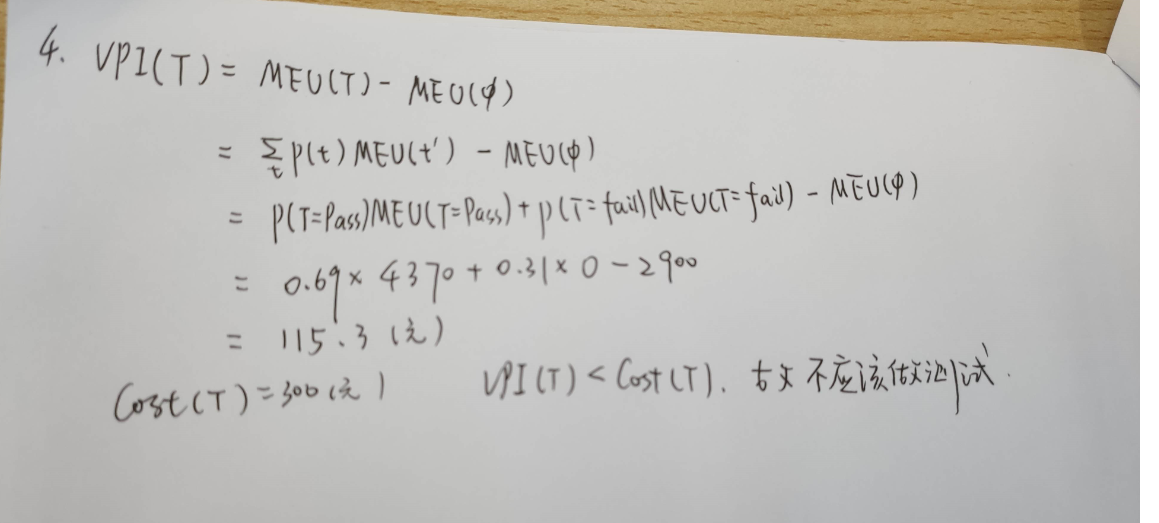 4. VPI(T) = MEU(T) - MEU(ϕ)
= Σ_t P(t) MEU(t') - MEU(ϕ)
= P(T=Pass)MEU(T=Pass) + P(T=fail)MEU(T=fail) - MEU(ϕ)
= 0.69 × 4370 + 0.31 × 0 - 2900
= 115.3 (元)
Cost(T) = 300(元) VPI(T) < Cost(T). 故不应该做测试.